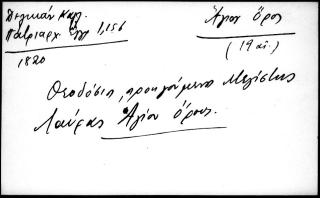 Δελικάν Καλ.
Πατριαρχ Έγγ 1,156
1820
Άγιον Όρος
(19 αι.)
Θεοδόσιος, προηγούμενος Μεγίστης
Λαύρας Αγίου Όρους.